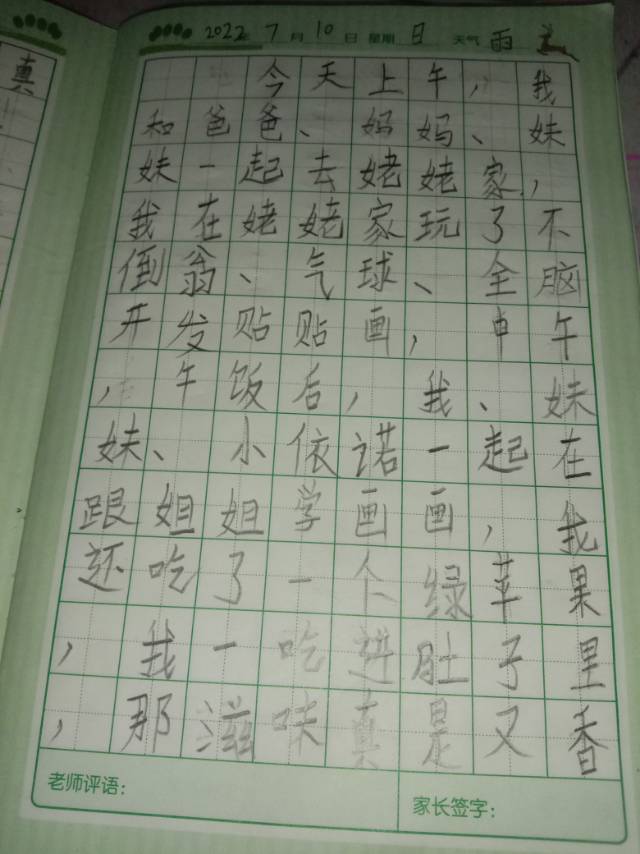 真
2022年 7月 10日 星期 日 天气 雨
今天上午，我
和爸爸、妈妈、妹
妹一起去姥姥家，
我在姥姥家玩了不
倒翁、气球、全脑
开发贴贴画，中午
，午饭后，我、妹
妹、小依诺一起在
跟姐姐学画画，我
还吃了一个绿苹果
，我一吃进肚子里
，那滋味真是又香
老师评语：
家长签字：